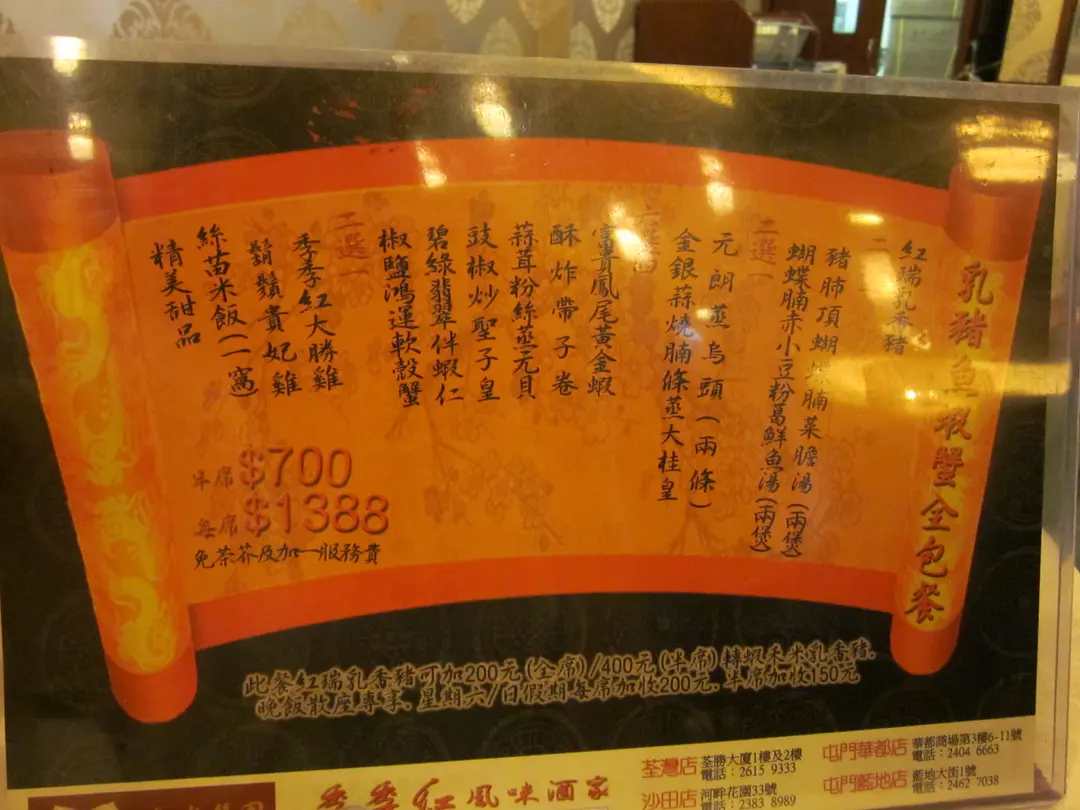 乳豬魚蝦蟹全包餐
紅瑞乳香豬
二
豬肺頂蝴蝶腩菜膽湯(兩煲)
蝴蝶腩赤小豆粉葛鮮魚湯(兩煲)
二選一
元朗蒸烏頭(兩條)
金銀蒜燒腩條蒸大桂皇
六選四
富貴鳳尾黃金蝦
酥炸帶子卷
蒜茸粉絲蒸元貝
豉椒炒聖子皇
碧綠翡翠伴蝦仁
椒鹽鴻運軟殼蟹
二選一
季季紅大勝雞
鬍鬚貴妃雞
絲苗米飯(一窩)
精美甜品
半席$700
每席$1388
免茶芥及加一服務費
此餐紅瑞乳香豬可加200元(全席)/400元(半席)轉蝦禾米乳香豬.
晚飯散座專享.星期六/日假期每席加收200元.半席加收150元
季季紅風味酒家
荃灣店 荃勝大廈1樓及2樓
電話：2615 9333
沙田店 河畔花園33號
電話：2383 8989
屯門華都店 華都商場第3樓6-11號
電話：2404 6663
屯門藍地店 藍地大街1號
電話：2462 7038